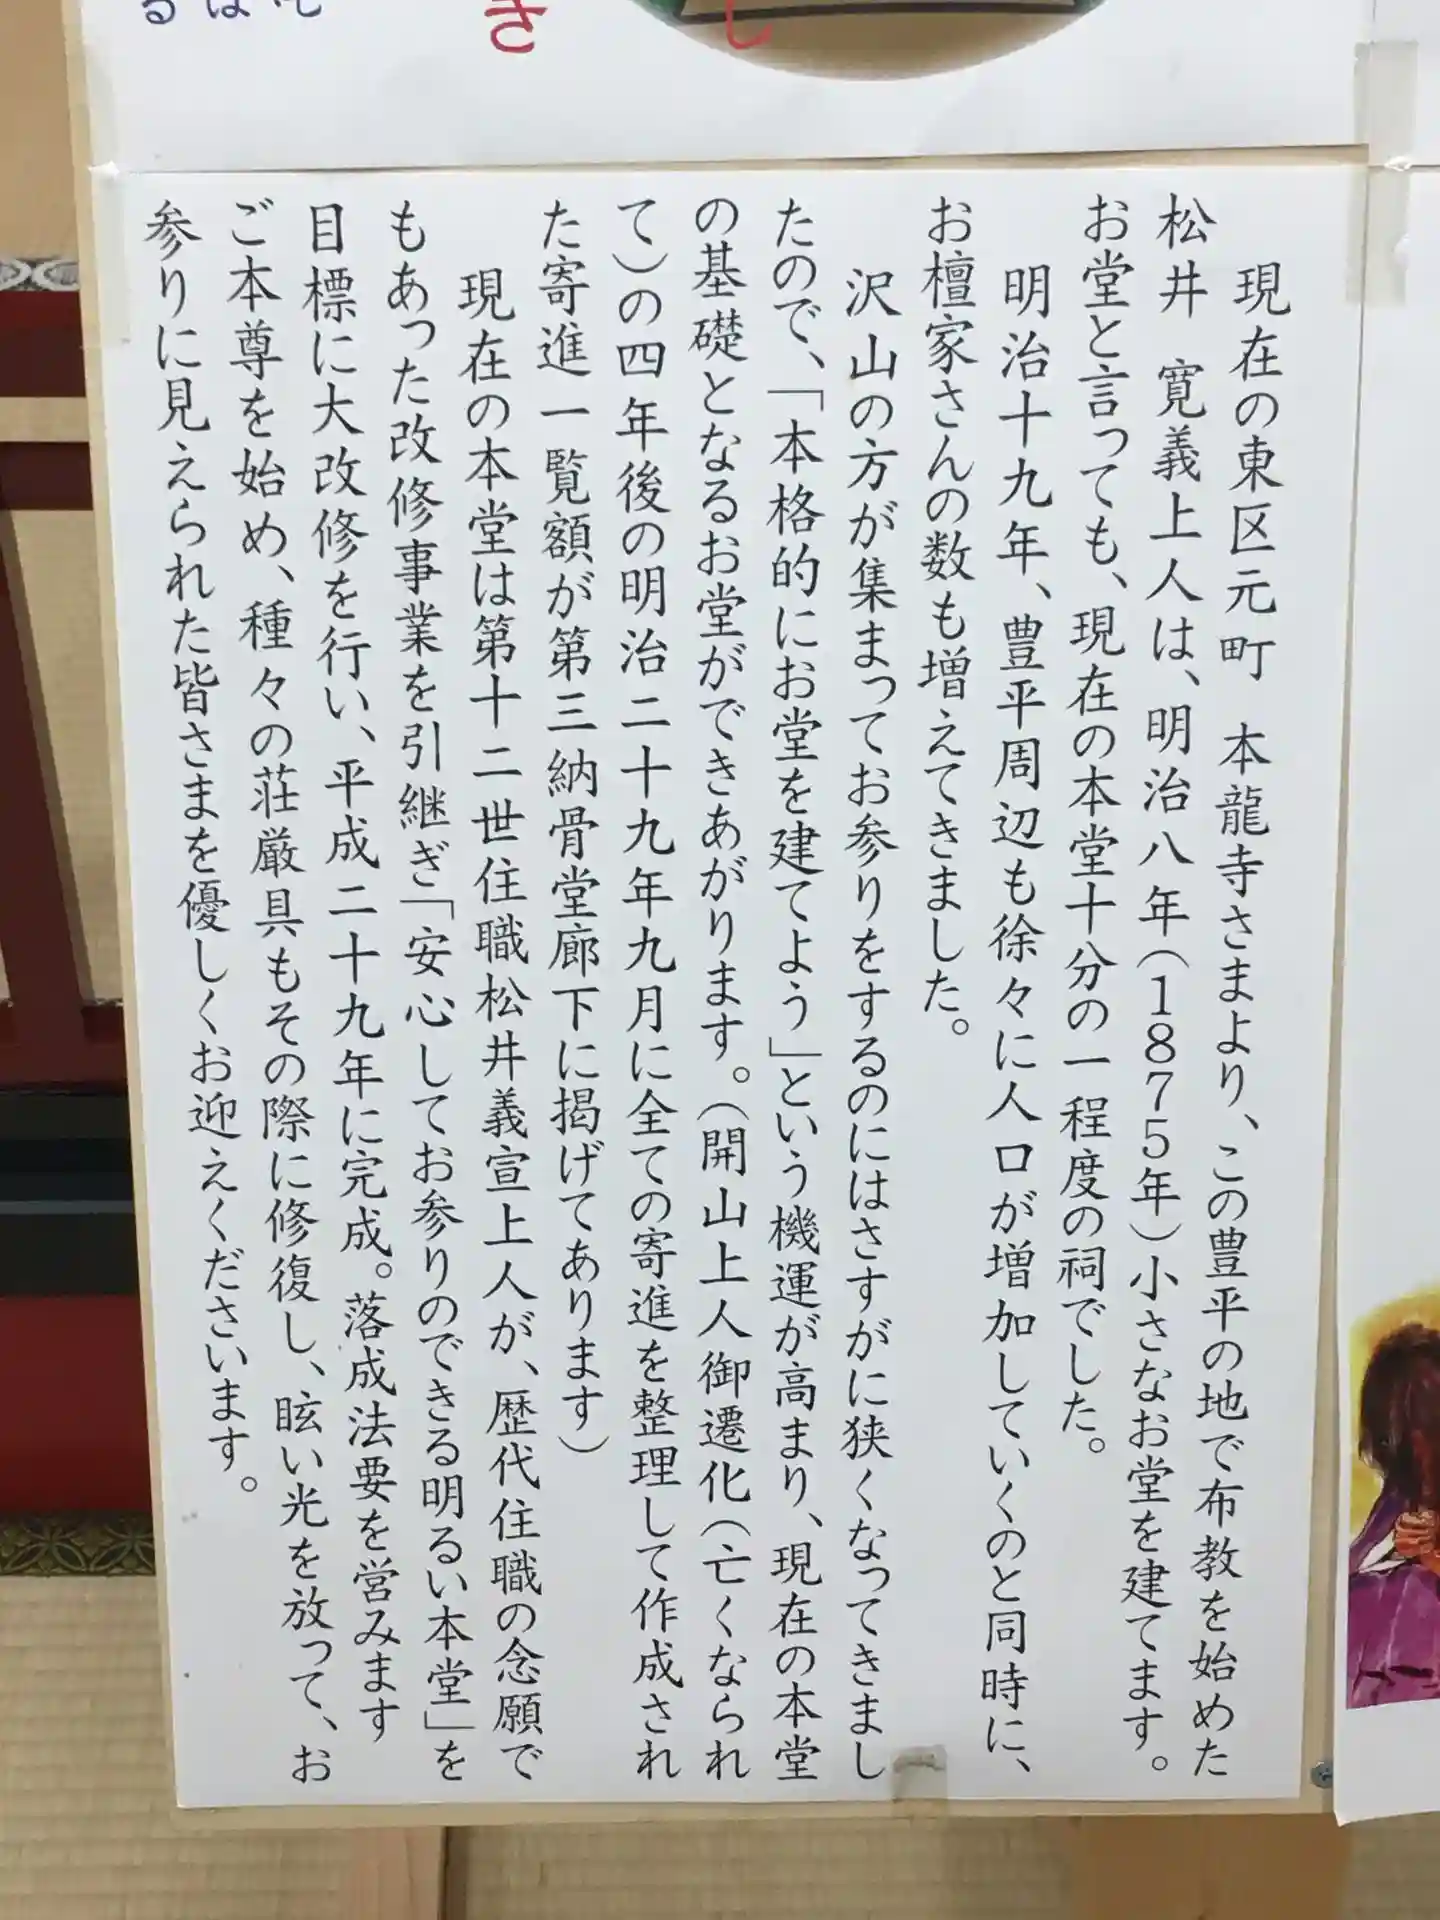 き
し
現在の東区元町　本龍寺さまより、この豊平の地で布教を始めた
松井　寛義上人は、明治八年（1875年）小さなお堂を建てます。
お堂と言っても、現在の本堂十分の一程度の祠でした。
明治十九年、豊平周辺も徐々に人口が増加していくのと同時に、
お檀家さんの数も増えてきました。
沢山の方が集まってお参りをするのにはさすがに狭くなってきまし
たので、「本格的にお堂を建てよう」という機運が高まり、現在の本堂
の基礎となるお堂ができあがります。（開山上人御遷化（亡くなられ
て）の四年後の明治二十九年九月に全ての寄進を整理して作成され
た寄進一覧額が第三納骨堂廊下に掲げてあります）
現在の本堂は第十二世住職松井義宣上人が、歴代住職の念願で
もあった改修事業を引継ぎ「安心してお参りのできる明るい本堂」を
目標に大改修を行い、平成二十九年に完成。落成法要を営みます
ご本尊を始め、種々の荘厳具もその際に修復し、眩い光を放って、お
参りに見えられた皆さまを優しくお迎えくださいます。